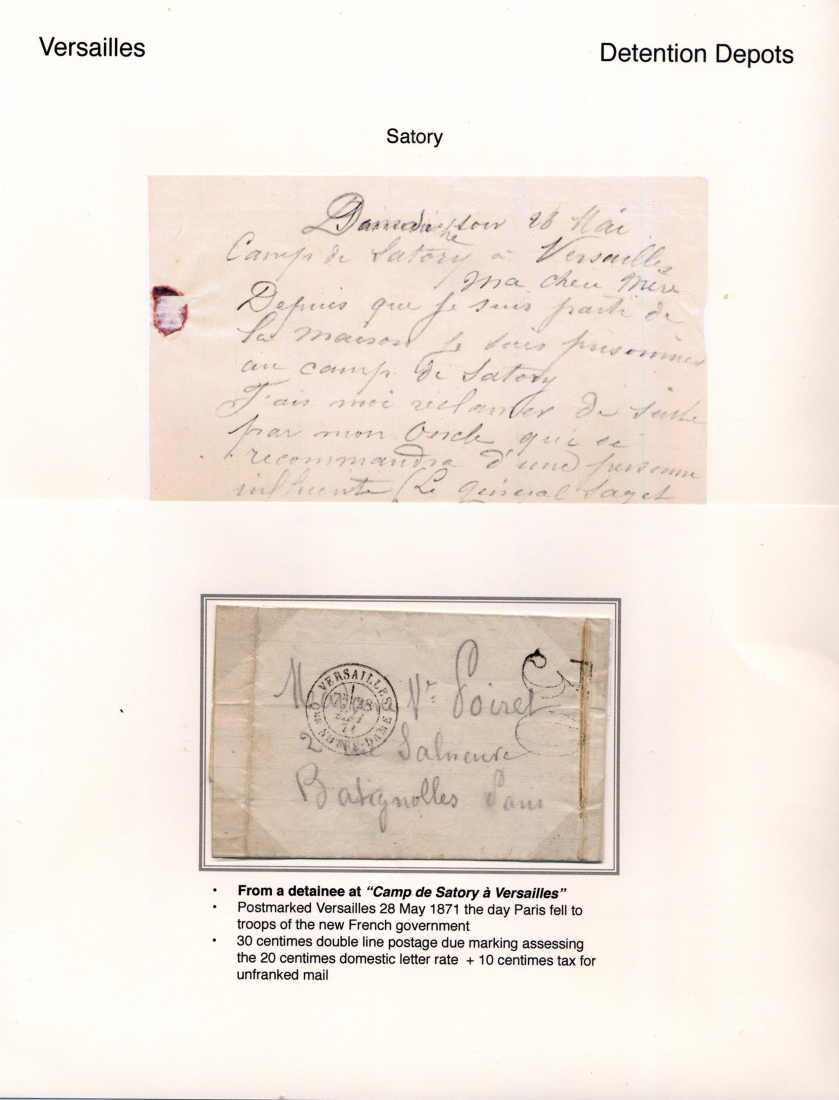 Versailles
Detention Depots
Satory
soir 28 Mai
Camp de Satory à Versailles
Ma chere Mère
Depuis que je suis parti de
la maison je suis prisonnier
au camp de Satory
Fais moi réclamer de suite
par mon Oncle qui se
recommandra d'une personne
influente (Le général Saget
VERSAILLES
NOTRE-DAME
28
71
30
M Vve Poiret
2 rue Salneuve
Batignolles Paris
· From a detainee at “Camp de Satory à Versailles”
· Postmarked Versailles 28 May 1871 the day Paris fell to
troops of the new French government
· 30 centimes double line postage due marking assessing
the 20 centimes domestic letter rate + 10 centimes tax for
unfranked mail